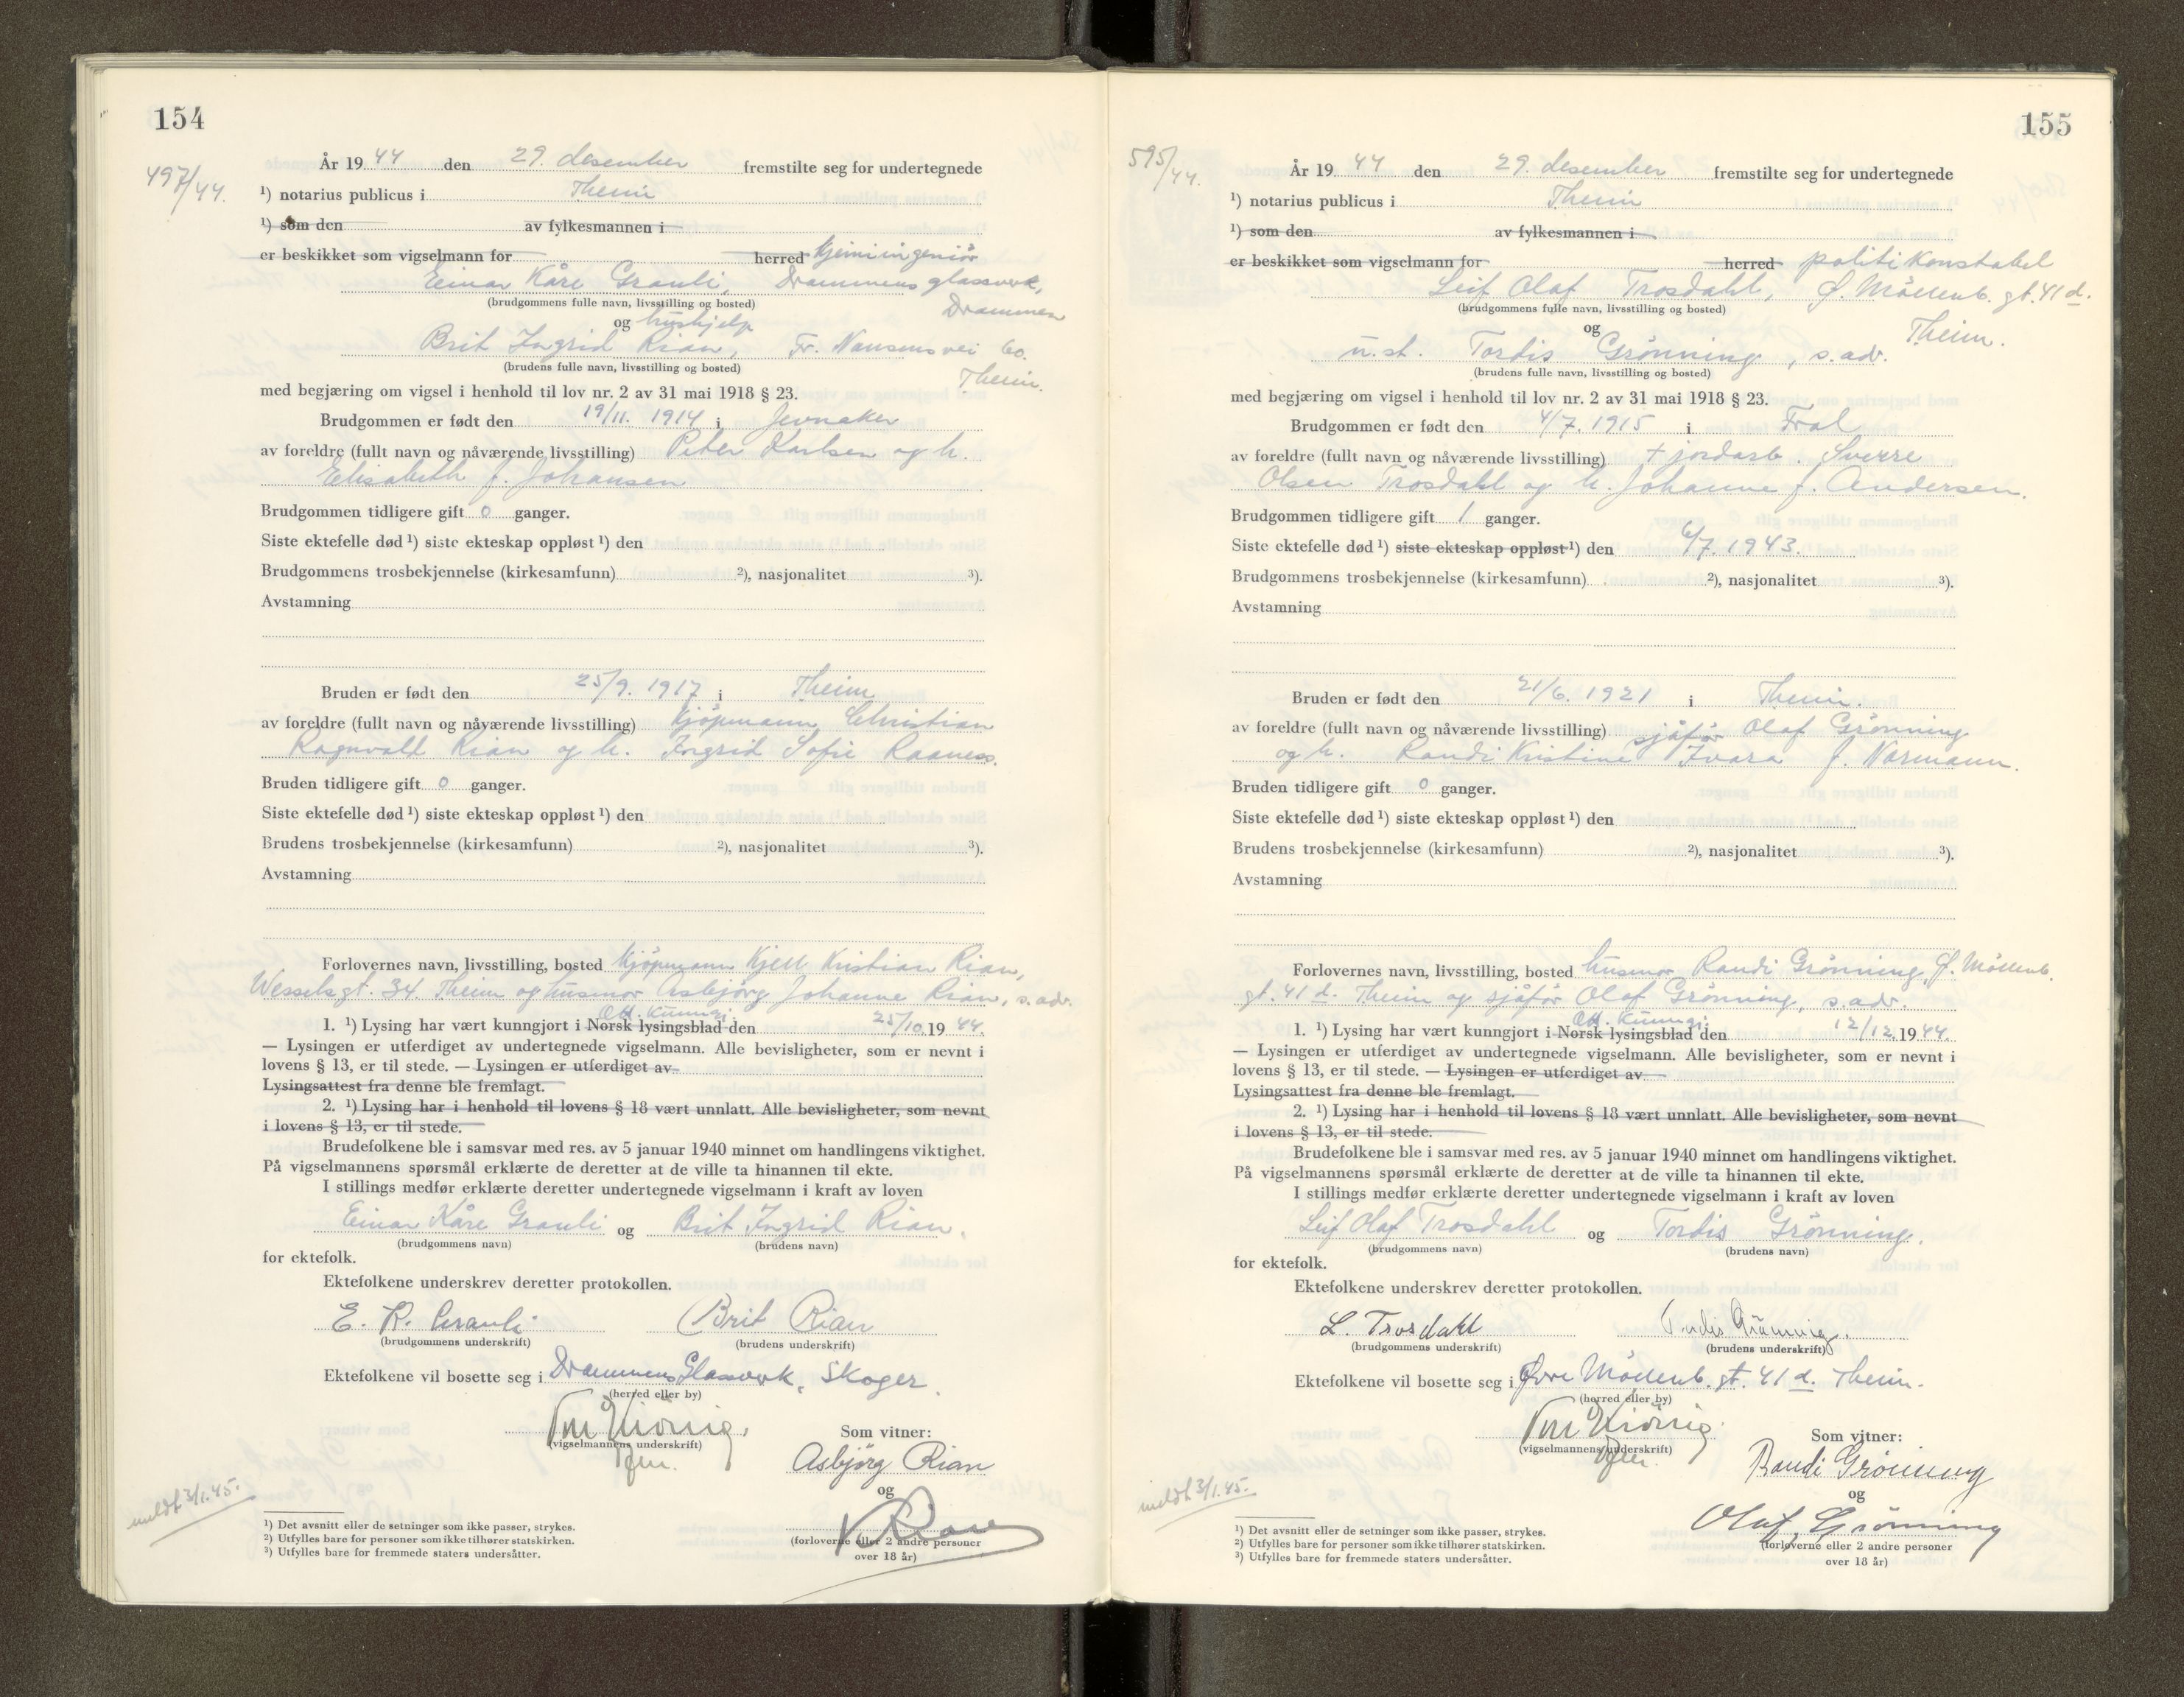 154
497/44.
År 19 44 den 29. desember fremstilte seg for undertegnede
¹) notarius publicus i Theim
¹) som den av fylkesmannen i
er beskikket som vigselmann for herred kjemiingeniör
Einar Kåre Grauli, Drammens glassverk,
(brudgommens fulle navn, livsstilling og bosted) Drammen
og hushjelp
Brit Ingrid Rian, Fr. Nansens vei 60.
(brudens fulle navn, livsstilling og bosted) Theim.
med begjæring om vigsel i henhold til lov nr. 2 av 31 mai 1918 § 23.
Brudgommen er født den 19/11. 1914 i Jevnaker
av foreldre (fullt navn og nåværende livsstilling) Peter Karlsen og h.
Elisabeth f. Johansen
Brudgommen tidligere gift 0 ganger.
Siste ektefelle død ¹) siste ekteskap oppløst ¹) den
Brudgommens trosbekjennelse (kirkesamfunn) ²), nasjonalitet ³).
Avstamning
Bruden er født den 25/9. 1917 i Theim
av foreldre (fullt navn og nåværende livsstilling) kjöpmann Christian
Ragnvald Rian og h. Ingrid Sofie Raaness.
Bruden tidligere gift 0 ganger.
Siste ektefelle død ¹) siste ekteskap oppløst ¹) den
Brudens trosbekjennelse (kirkesamfunn) ²), nasjonalitet ³).
Avstamning
Forlovernes navn, livsstilling, bosted kjöpmann Kjell Kristian Rian,
Wesselsgt. 34 Theim og husmor Asbjörg Johanne Rian, s. adr.
Off. Kunngj.
1. ¹) Lysing har vært kunngjort i Norsk lysingsblad den 25/10 19 44.
— Lysingen er utferdiget av undertegnede vigselmann. Alle bevisligheter, som er nevnt i
lovens § 13, er til stede. — Lysingen er utferdiget av
Lysingsattest fra denne ble fremlagt.
2. ¹) Lysing har i henhold til lovens § 18 vært unnlatt. Alle bevisligheter, som nevnt
i lovens § 13, er til stede.
Brudefolkene ble i samsvar med res. av 5 januar 1940 minnet om handlingens viktighet.
På vigselmannens spørsmål erklærte de deretter at de ville ta hinannen til ekte.
I stillings medfør erklærte deretter undertegnede vigselmann i kraft av loven
Einar Kåre Grauli og Brit Ingrid Rian.
(brudgommens navn) (brudens navn)
for ektefolk.
Ektefolkene underskrev deretter protokollen.
E. K. Grauli Brit Rian
(brudgommens underskrift) (brudens underskrift)
Ektefolkene vil bosette seg i Drammens Glassverk, Skoger.
(herred eller by)
(vigselmannens underskrift) Som vitner:
Asbjörg Rian
og
meldt 3/1.45.
K Rian
(forloverne eller 2 andre personer
over 18 år)
¹) Det avsnitt eller de setninger som ikke passer, strykes.
²) Utfylles bare for personer som ikke tilhører statskirken.
³) Utfylles bare for fremmede staters undersåtter.
155
595/44.
År 19 44 den 29. desember fremstilte seg for undertegnede
¹) notarius publicus i Theim
¹) som den av fylkesmannen i
er beskikket som vigselmann for herred politikonstabel
Leif Olaf Trosdahl, Ö. Möllenb. gt. 41 d.
(brudgommens fulle navn, livsstilling og bosted) Theim.
og
u. st. Tordis Grönning, s. adr.
(brudens fulle navn, livsstilling og bosted)
med begjæring om vigsel i henhold til lov nr. 2 av 31 mai 1918 § 23.
Brudgommen er født den 4/7. 1915 i Frol
av foreldre (fullt navn og nåværende livsstilling) + jordarb. Sverre
Olsen Trosdahl og h. Johanne f. Andersen.
Brudgommen tidligere gift 1 ganger.
Siste ektefelle død ¹) siste ekteskap oppløst ¹) den 6/7. 1943.
Brudgommens trosbekjennelse (kirkesamfunn) ²), nasjonalitet ³).
Avstamning
Bruden er født den 21/6. 1921 i Theim.
av foreldre (fullt navn og nåværende livsstilling) sjåför Olaf Grönning
og h. Randi Kristine Ivara f. Normann.
Bruden tidligere gift 0 ganger.
Siste ektefelle død ¹) siste ekteskap oppløst ¹) den
Brudens trosbekjennelse (kirkesamfunn) ²), nasjonalitet ³).
Avstamning
Forlovernes navn, livsstilling, bosted husmor Randi Grönning, Ö. Möllenb.
gt. 41 d. Theim og sjåför Olaf Grönning, s. adr.
Off. Kunngj.
1. ¹) Lysing har vært kunngjort i Norsk lysingsblad den 12/12. 19 44.
— Lysingen er utferdiget av undertegnede vigselmann. Alle bevisligheter, som er nevnt i
lovens § 13, er til stede. — Lysingen er utferdiget av
Lysingsattest fra denne ble fremlagt.
2. ¹) Lysing har i henhold til lovens § 18 vært unnlatt. Alle bevisligheter, som nevnt
i lovens § 13, er til stede.
Brudefolkene ble i samsvar med res. av 5 januar 1940 minnet om handlingens viktighet.
På vigselmannens spørsmål erklærte de deretter at de ville ta hinannen til ekte.
I stillings medfør erklærte deretter undertegnede vigselmann i kraft av loven
Leif Olaf Trosdahl og Tordis Grönning.
(brudgommens navn) (brudens navn)
for ektefolk.
Ektefolkene underskrev deretter protokollen.
L. Trosdahl Tordis Grönning.
(brudgommens underskrift) (brudens underskrift)
Ektefolkene vil bosette seg i Övre Möllenb. gt. 41 d. Theim.
(herred eller by)
(vigselmannens underskrift) Som vitner:
Randi Grönning
og
meldt 3/1.45.
Olaf Grönning
(forloverne eller 2 andre personer
over 18 år)
¹) Det avsnitt eller de setninger som ikke passer, strykes.
²) Utfylles bare for personer som ikke tilhører statskirken.
³) Utfylles bare for fremmede staters undersåtter.